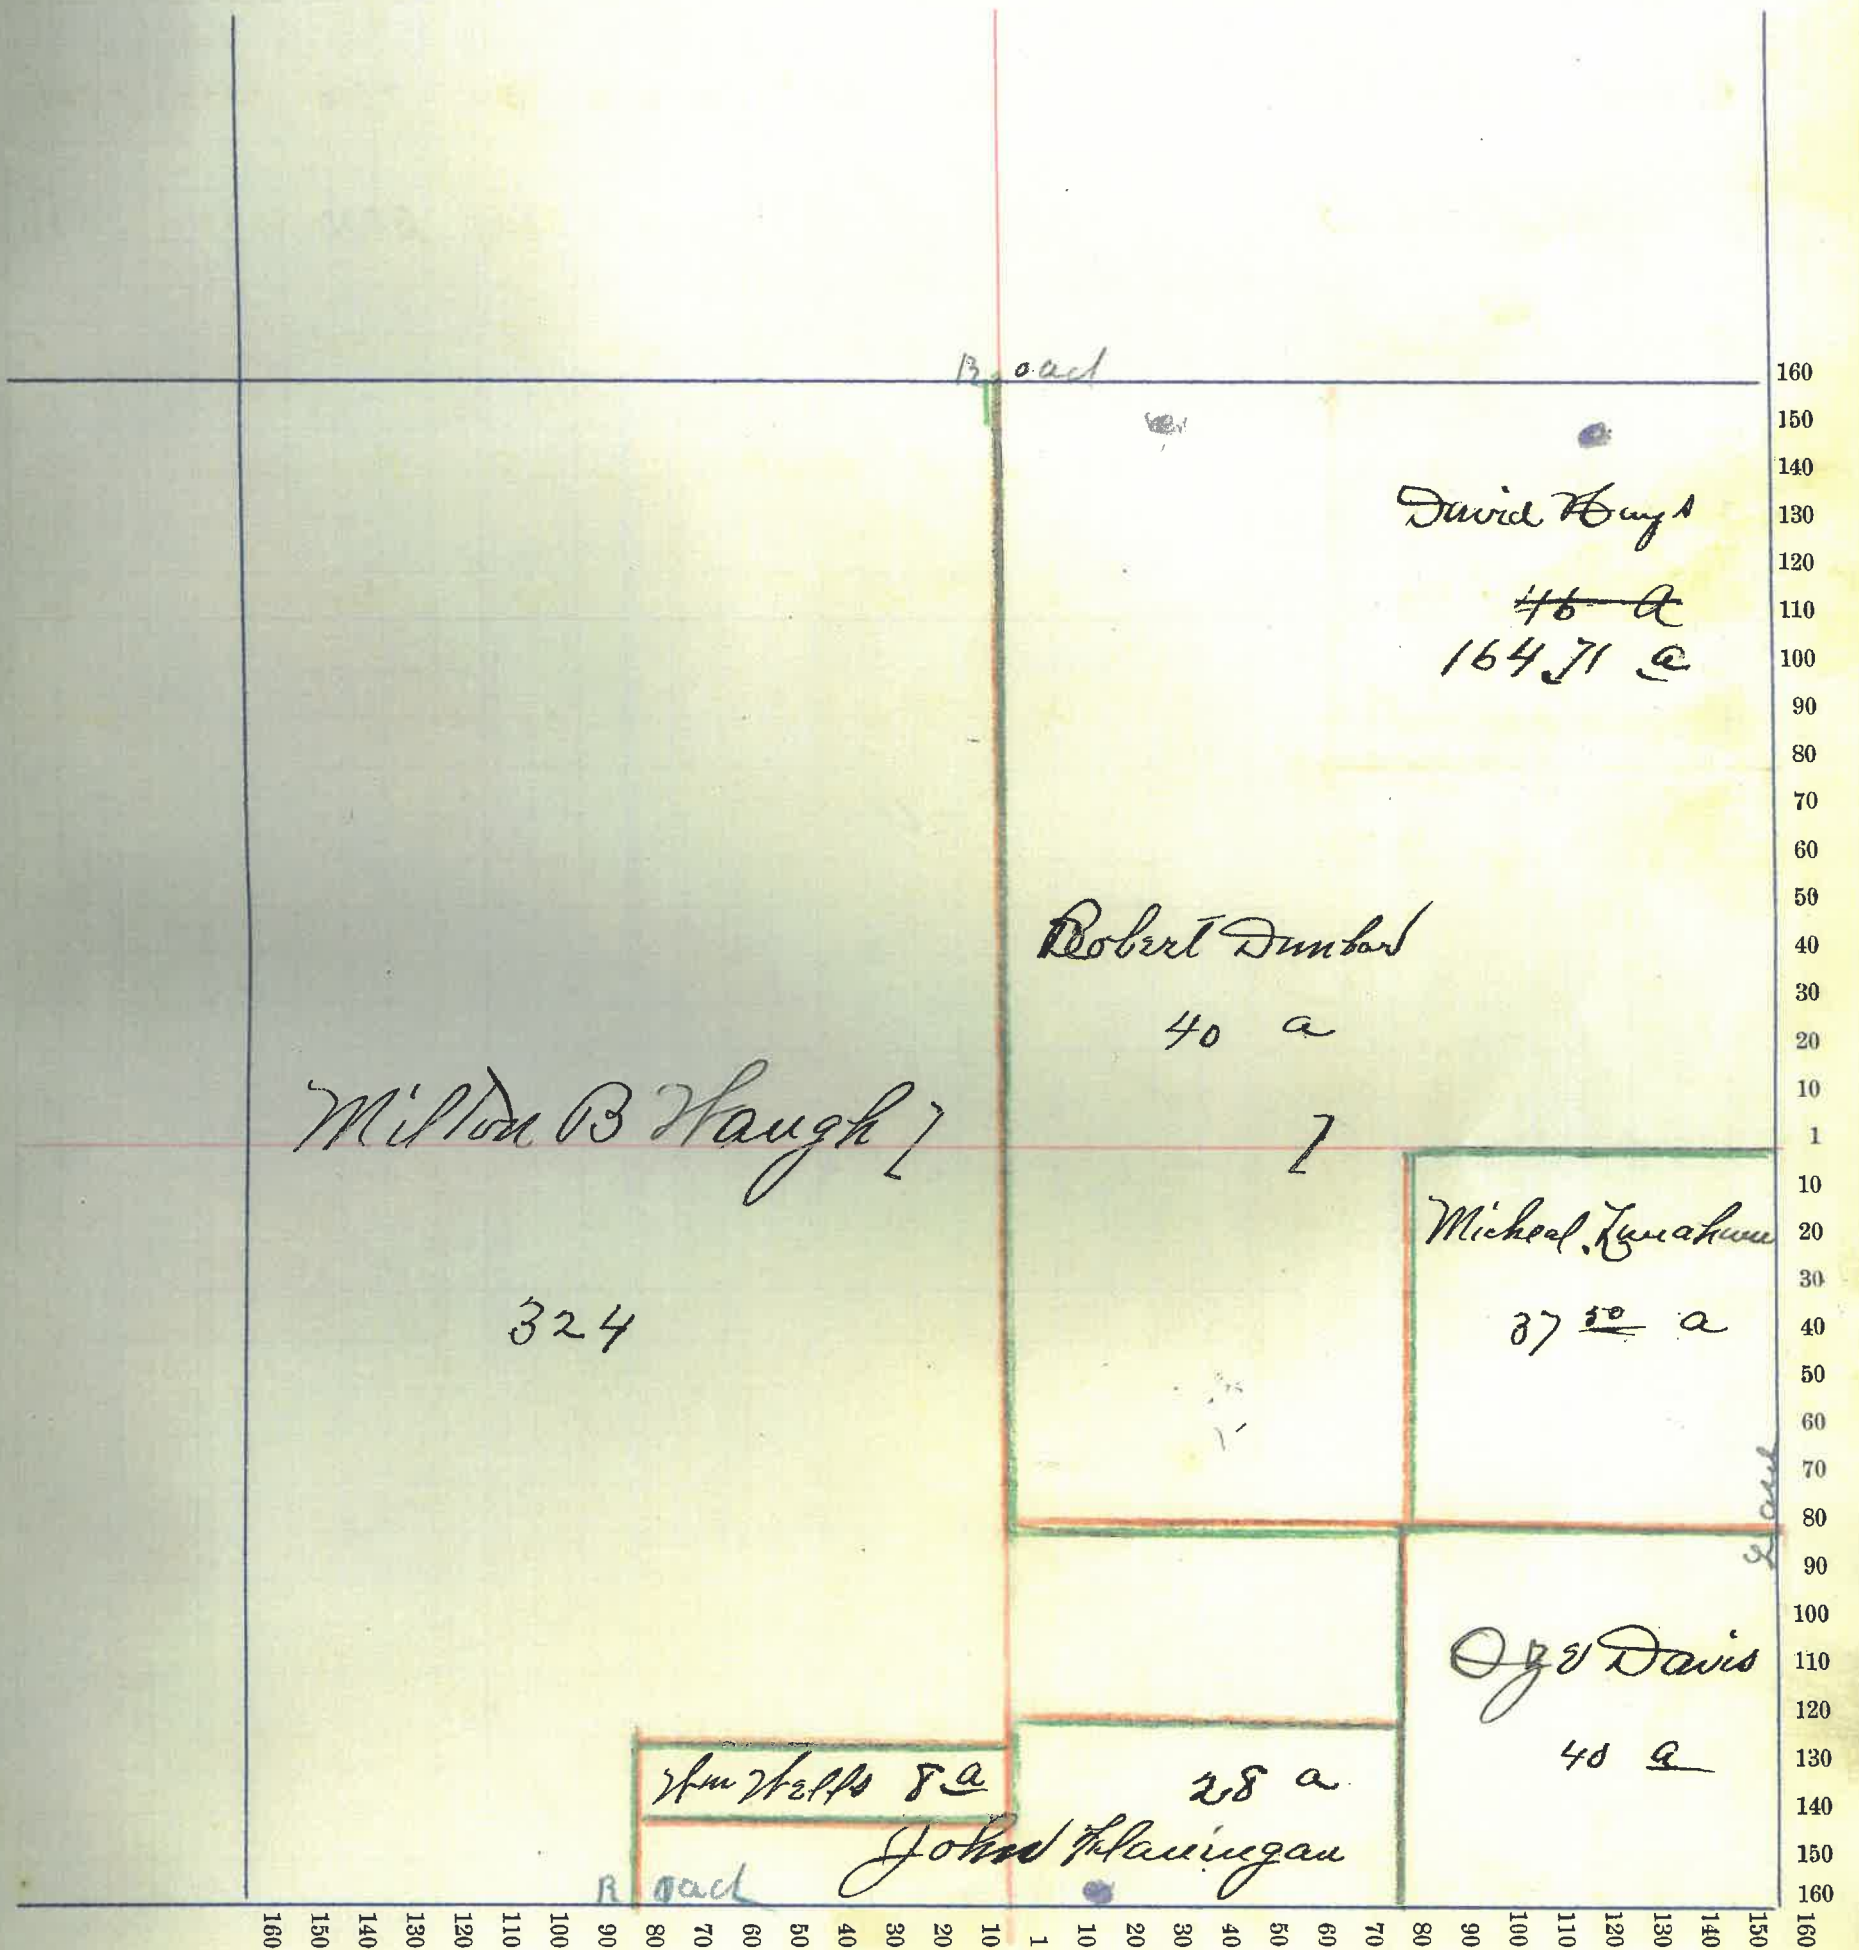 Road
David Hays
46 A
164.71 a
Robert Dunbar
40 a
Milton B Waugh
7
7
Micheal
324
37 50 a
Road
Davis
40 a
Wm Wells 8 a
28 a
John Flaningan
Road
160
150
140
130
120
110
100
90
80
70
60
50
40
30
20
10
1
10
20
30
40
50
60
70
80
90
100
110
120
130
140
150
160
160 150 140 130 120 110 100 90 80 70 60 50 40 30 20 10 1 10 20 30 40 50 60 70 80 90 100 110 120 130 140 150 160